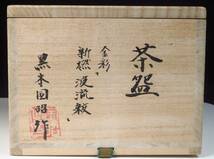 茶盌
金彩
新撚波流紋
黒木国昭作